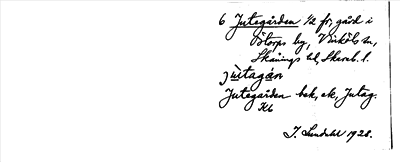 6 Jutegården 1/2 fr, gård i
Storps by, Vinköls sn,
Skånings hd, Skarab. l.
jùtagán
Jutegården bek, ek, Jutag.
Kb
I. Lundahl 1928.